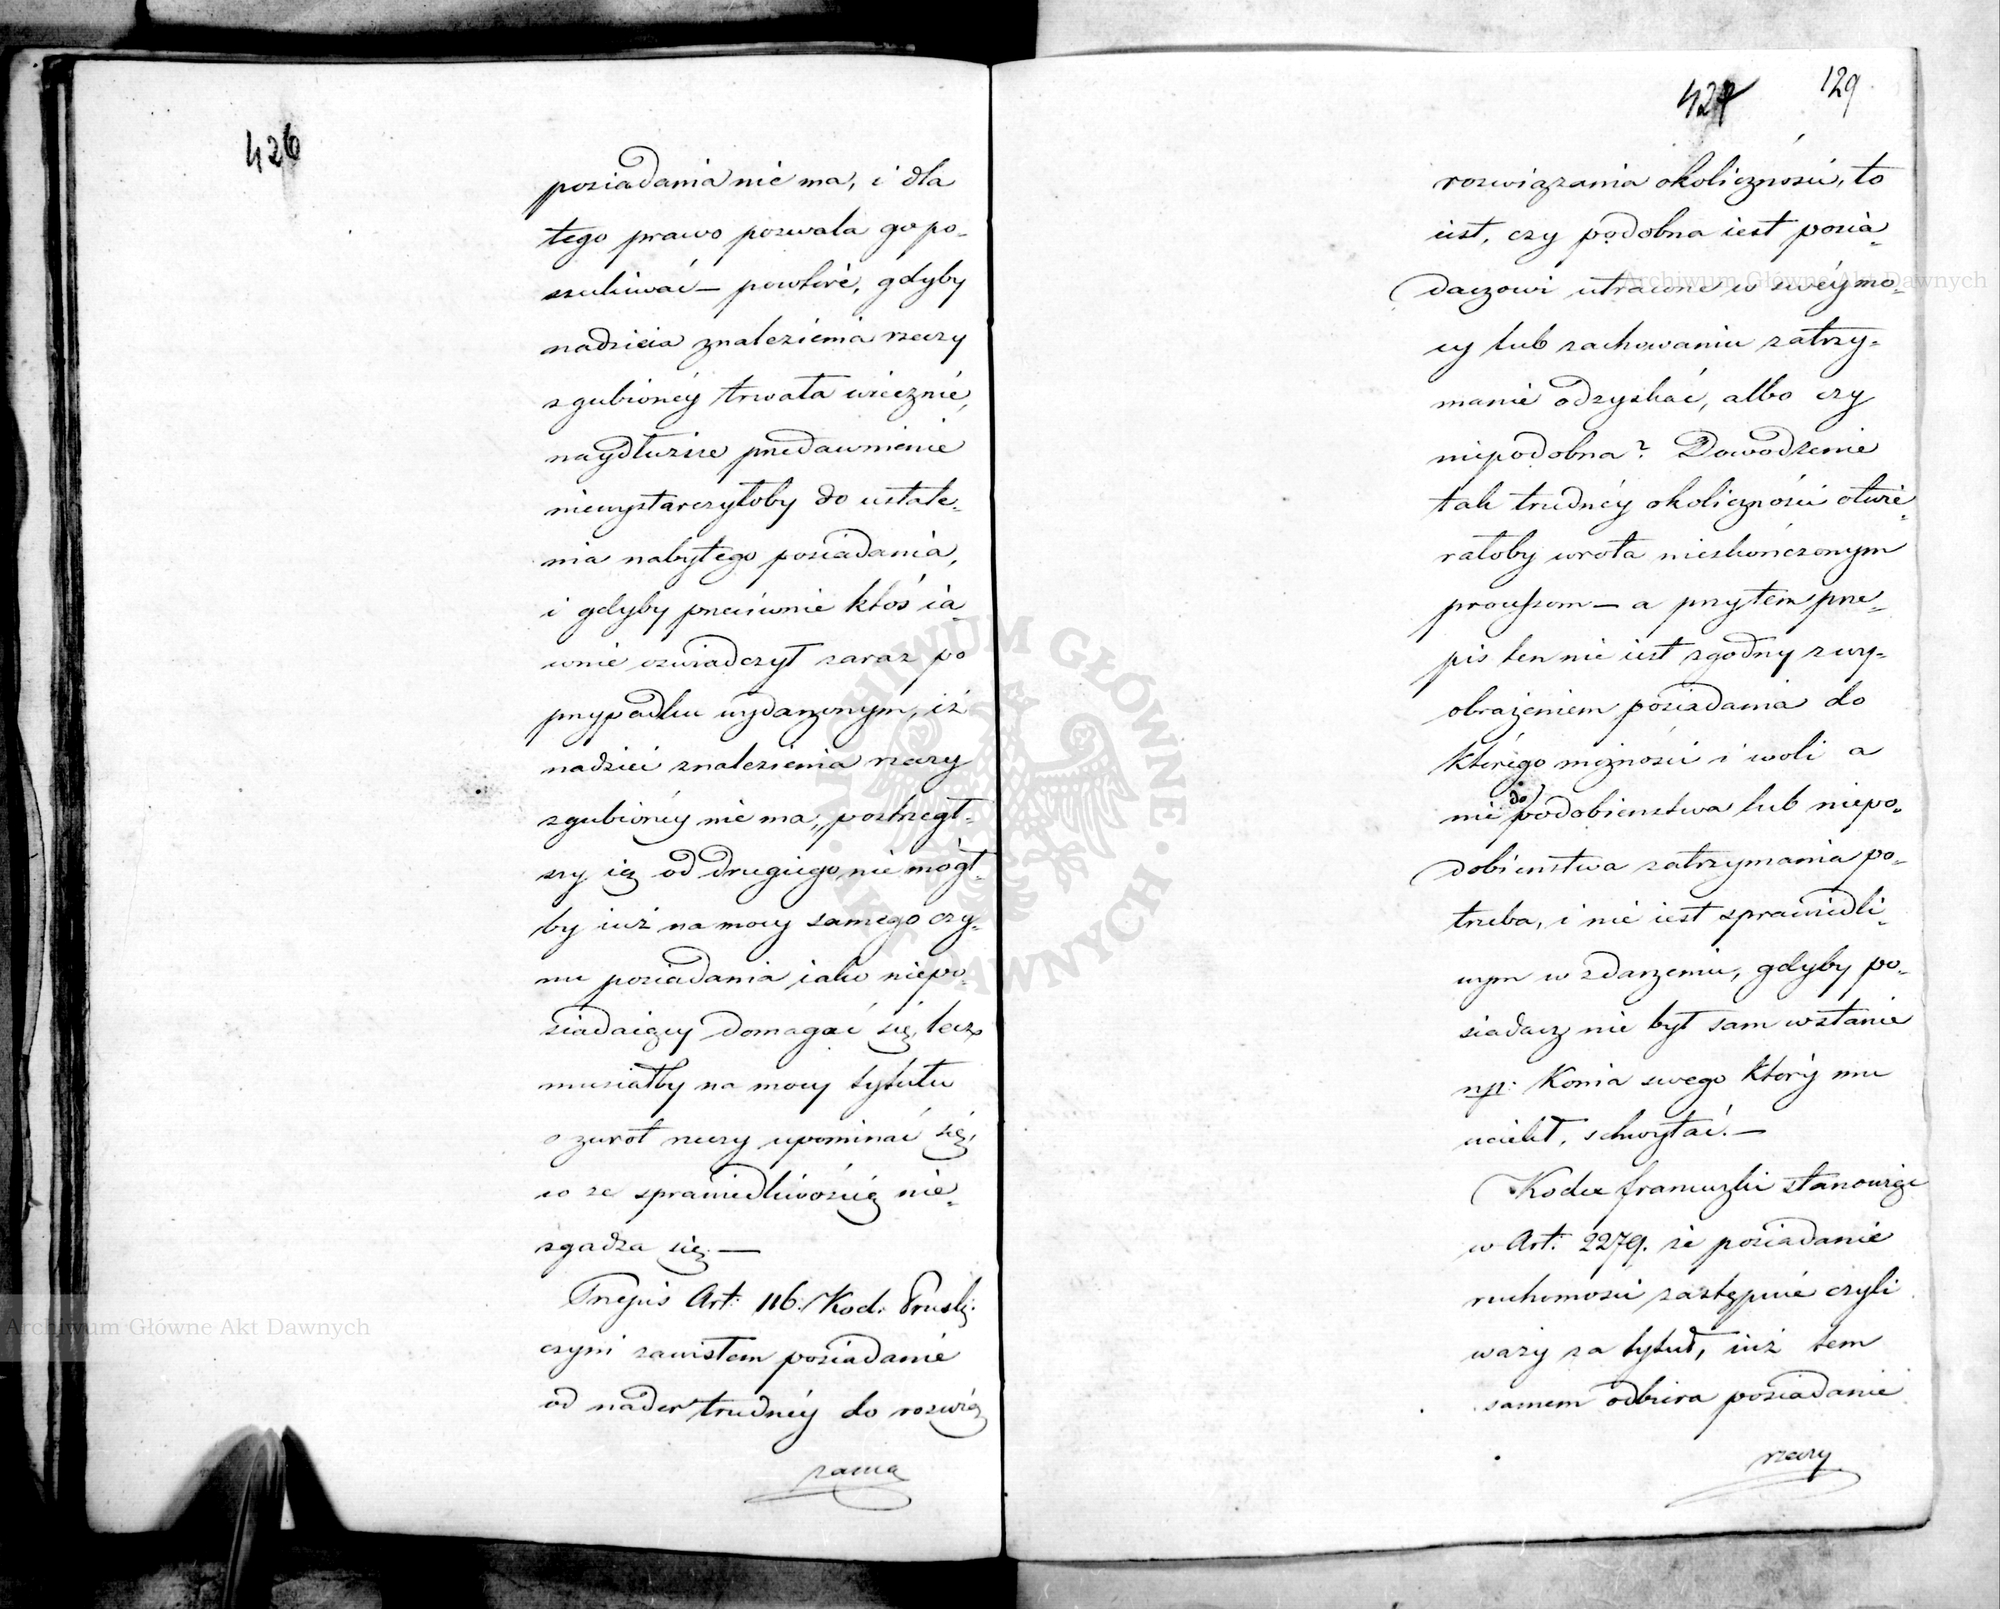 426
posiadania nie ma, i dla
tego prawo pozwala go po-
szukiwać — powtóre, gdyby
nadzieia znalezienia rzeczy
zgubionéy trwała wiecznie,
naydłuższe przedawnienie
niewystarczyłoby do ustale-
nia nabytego posiadania,
i gdyby przeciwnie ktoś ia-
wnie oświadczył zaraz po
przypadku wydarzonym, iż
nadziei znalezienia rzeczy
zgubionéy nie ma, postrzegł-
szy ią od drugiego nie mógł-
by iuż na mocy samego czy-
nu posiadania iako niepo-
siadaiący domagać się, lecz
musiałby na mocy tytułu
o zwrot rzeczy upominać się,
co ze sprawiedliwością nie-
zgadza się. —
Przepis Art: 116. Kod: Prusk:
czyni zawisłem posiadanie
od nader trudnéy do rozwią
zania
427 129
rozwiązania okoliczności, to
iest, czy podobna iest posia-
daczowi utracone w swéy mo-
cy lub zachowaniu zatrzy-
manie odzyskać, albo czy
niepodobna? Dowodzenie
tak trudnéy okoliczności otwie-
rałoby wrota nieskończonym
processom — a przytem prze-
pis ten nie iest zgodny z wy-
obrażeniem posiadania do
którego możności i woli a
nie do podobieństwa lub niepo-
dobieństwa zatrzymania po-
trzeba, i nie iest sprawiedli-
wym w zdarzeniu, gdyby po-
siadacz nie był sam w stanie
np: Konia swego który mu
uciekł, schwytać. —
Kodex francuzki stanowiąc
w Art: 2279. że posiadanie
ruchomości zastępuie czyli
waży za tytuł, iuż tem
samem odbiera posiadanie
rzeczy
Archiwum Główne Akt Dawnych
Archiwum Główne Akt Dawnych
ARCHIWUM GŁÓWNE · AKT DAWNYCH ·